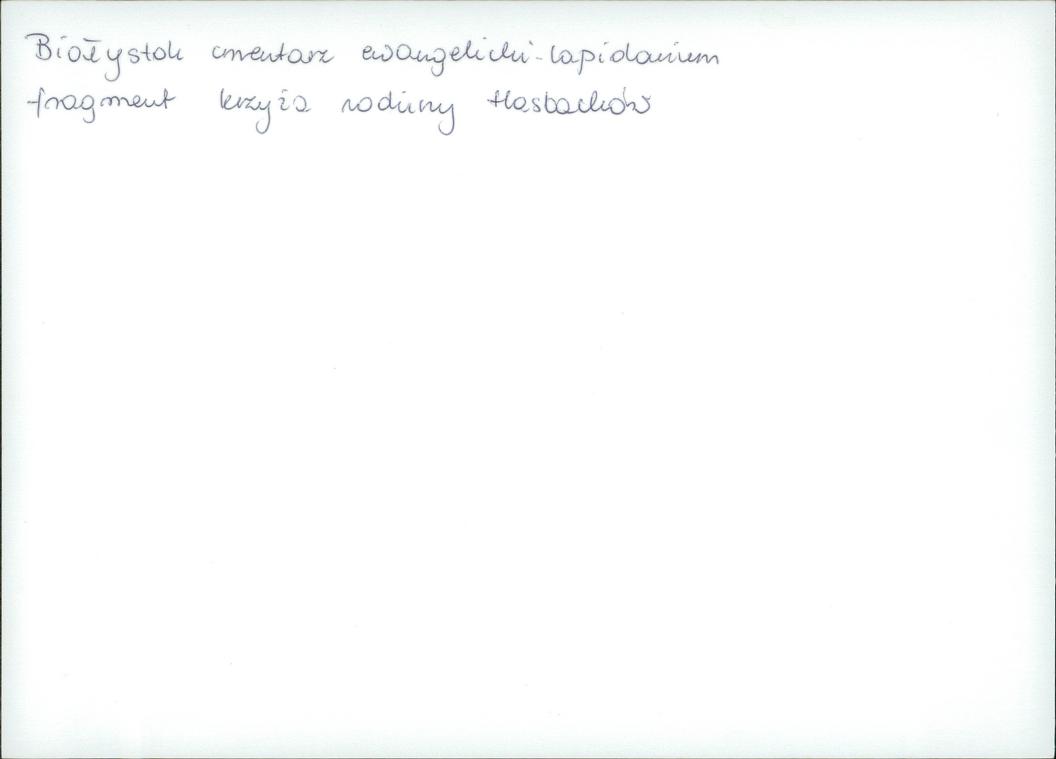 Białystok cmentarz ewangelicki-lapidarium
fragment krzyża rodziny Hasbachów